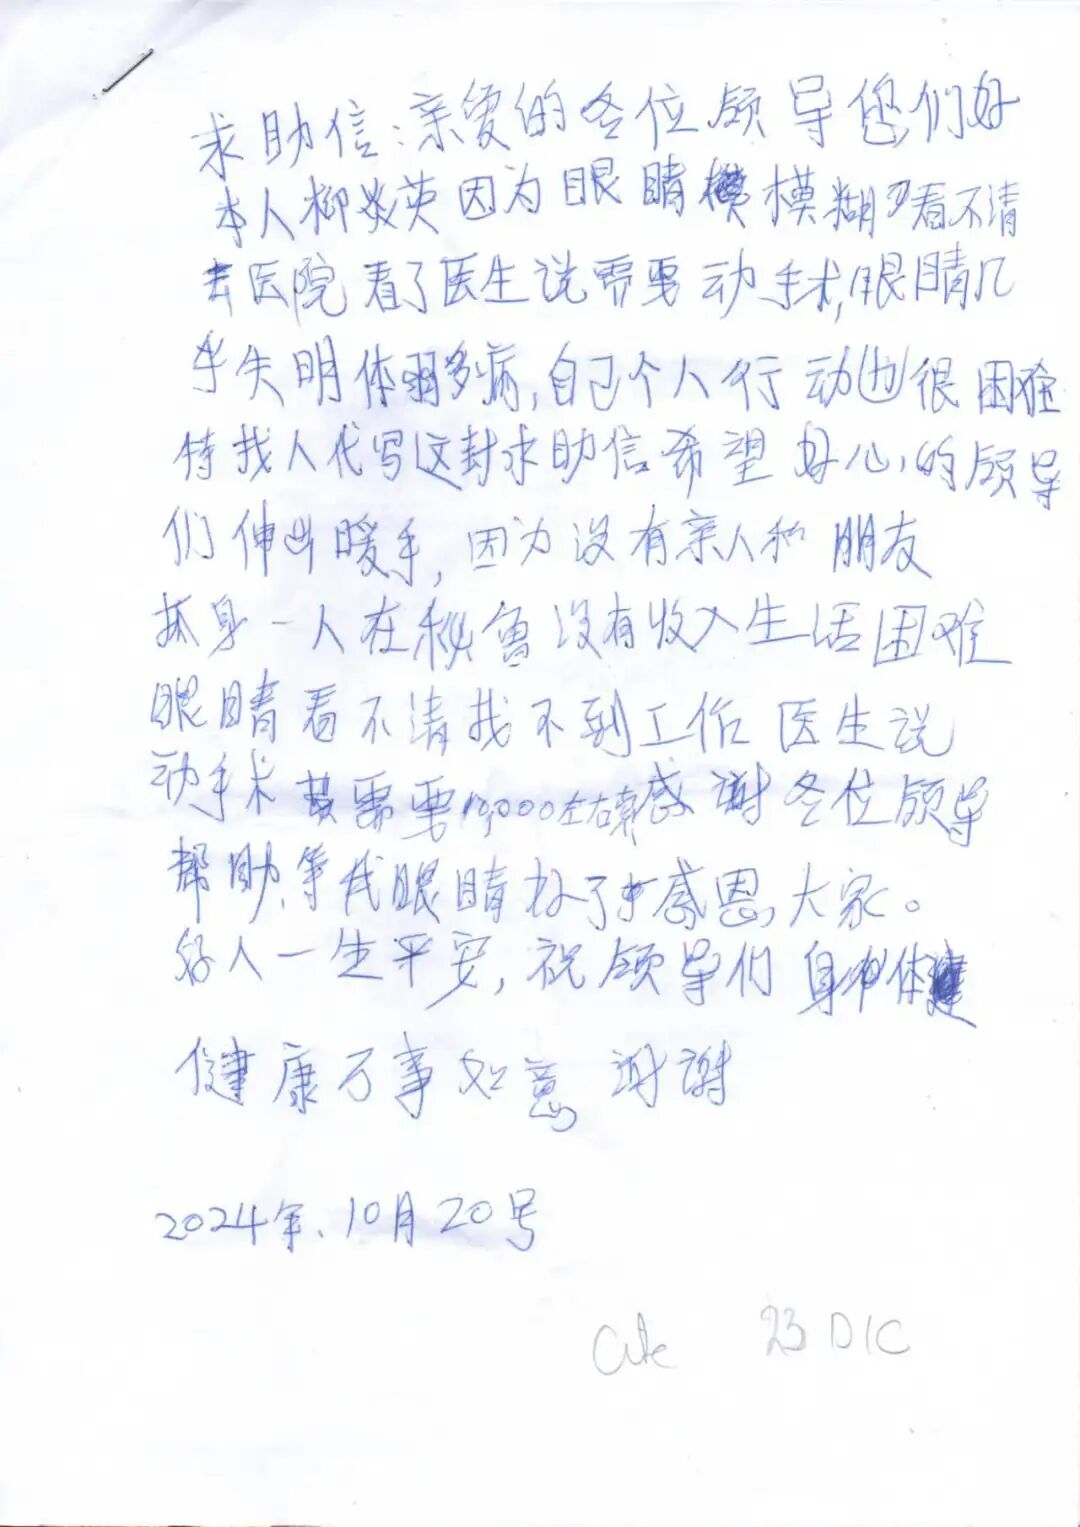 求助信:亲爱的各位领导您们好
本人柳炎英因为眼睛模糊了看不清
去医院看了医生说需要动手术,眼睛几
乎失明体弱多病,自己个人行动也很困难
特找人代写这封求助信希望好心的领导
们伸出暖手,因为没有亲人和朋友
孤身一人在秘鲁没有收入生活困难
眼睛看不清找不到工作医生说
动手术需要10,000左右感谢各位领导
帮助,等我眼睛好了才感恩,大家。
好人一生平安,祝领导们身体
健康万事如意谢谢
2024年.10月20号
23 DIC